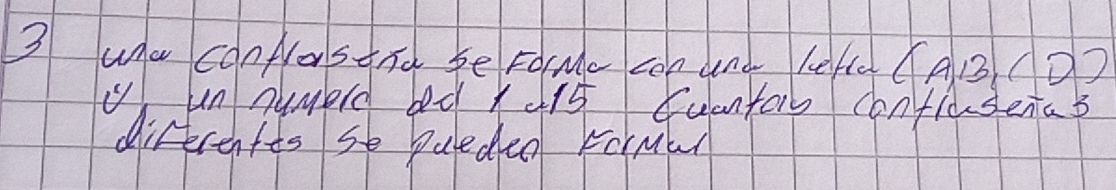 3 una contraseña se Forma con una letra (A,B,C D)
y un numero del 1 al 5 Cuantas contraseñas
diferentes se pueden Formar